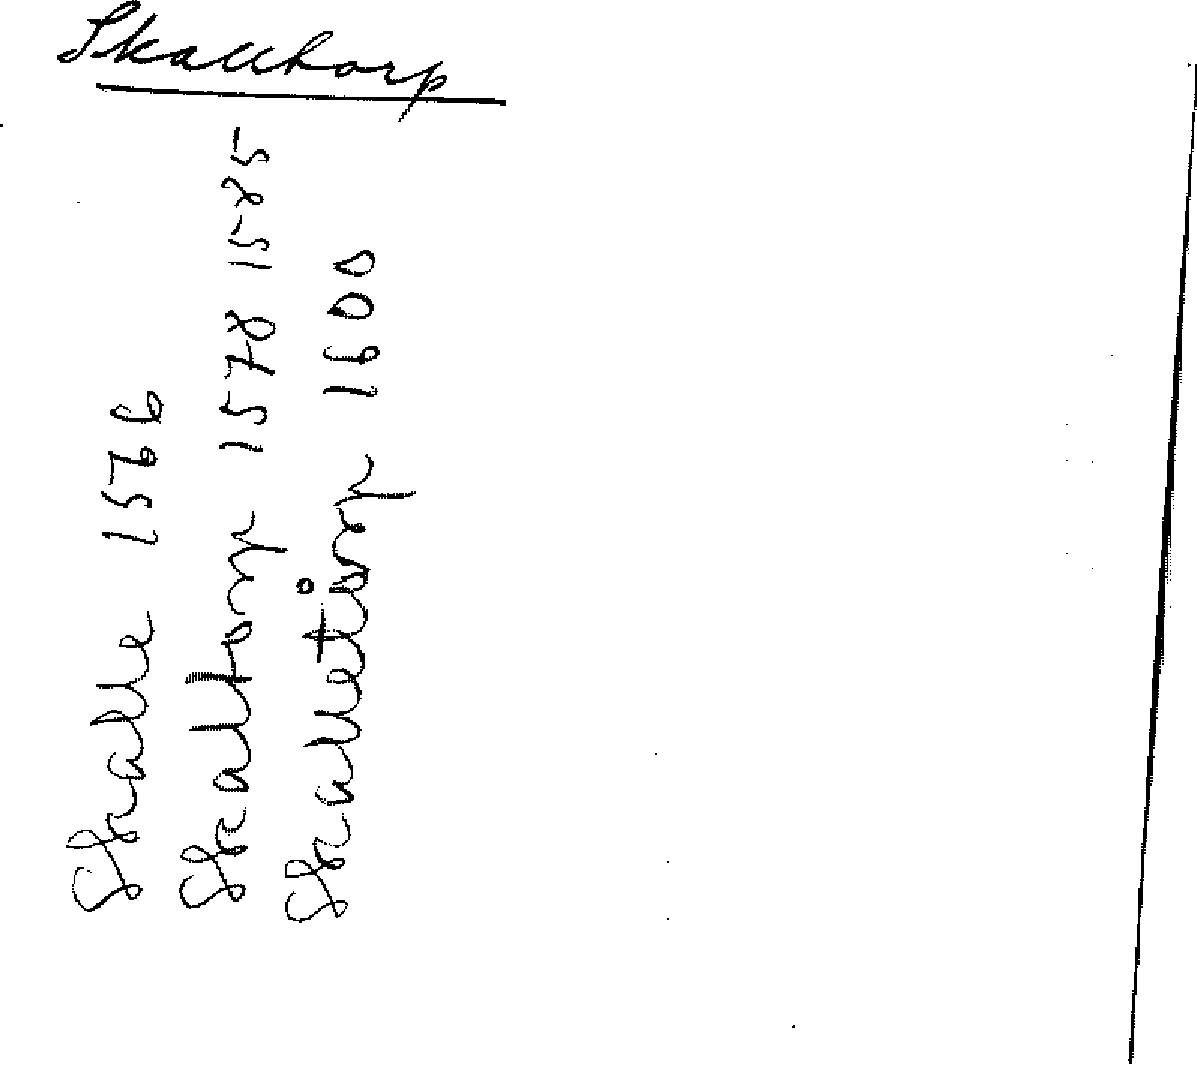 Skalltorp
Skalle 1566
Skaltorp 1578 1585
Skalletårp 1600